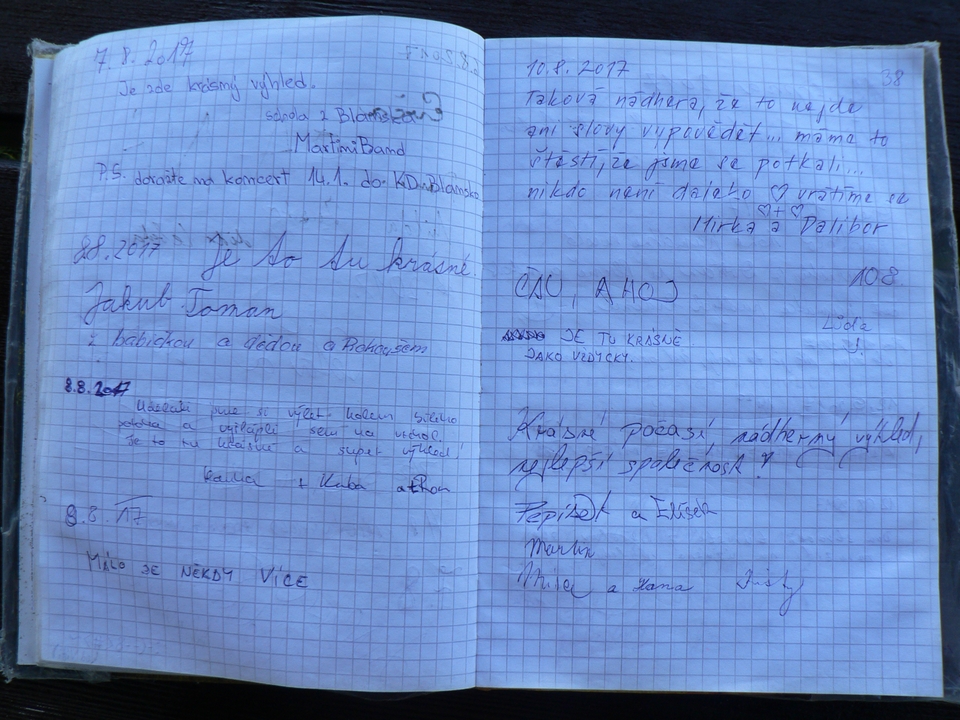 7. 8. 2017
Je zde krásný výhled.
schola z Blanska
Martini Band
P.S. dorazte na koncert 14.1. do KD Blansko
8.8. 2017 Je to tu krásné
Jakub Toman
z babičkou a dědou a
8.8. 2017
Udělali jsme si výlet kolem
a vyšlápli sem na vrchol.
Je to tu krásné a super výhled!
+ Kuba
8.8. 17
MÁLO JE NĚKDY VÍCE
38
10.8. 2017
Taková nádhera, že to nejde
ani slovy vypovědět... máme to
štěstí, že jsme se potkali...
nikdo není dalako ♡ vrátíme se
♡+♡
Mirka a Dalibor
10.8.
ČAU, AHOJ
Lída
J.
JE TU KRÁSNĚ
JAKO VŽDYCKY.
Krásné počasí, nádherný výhled,
nejlepší společnost!
a
Martin
a Hana